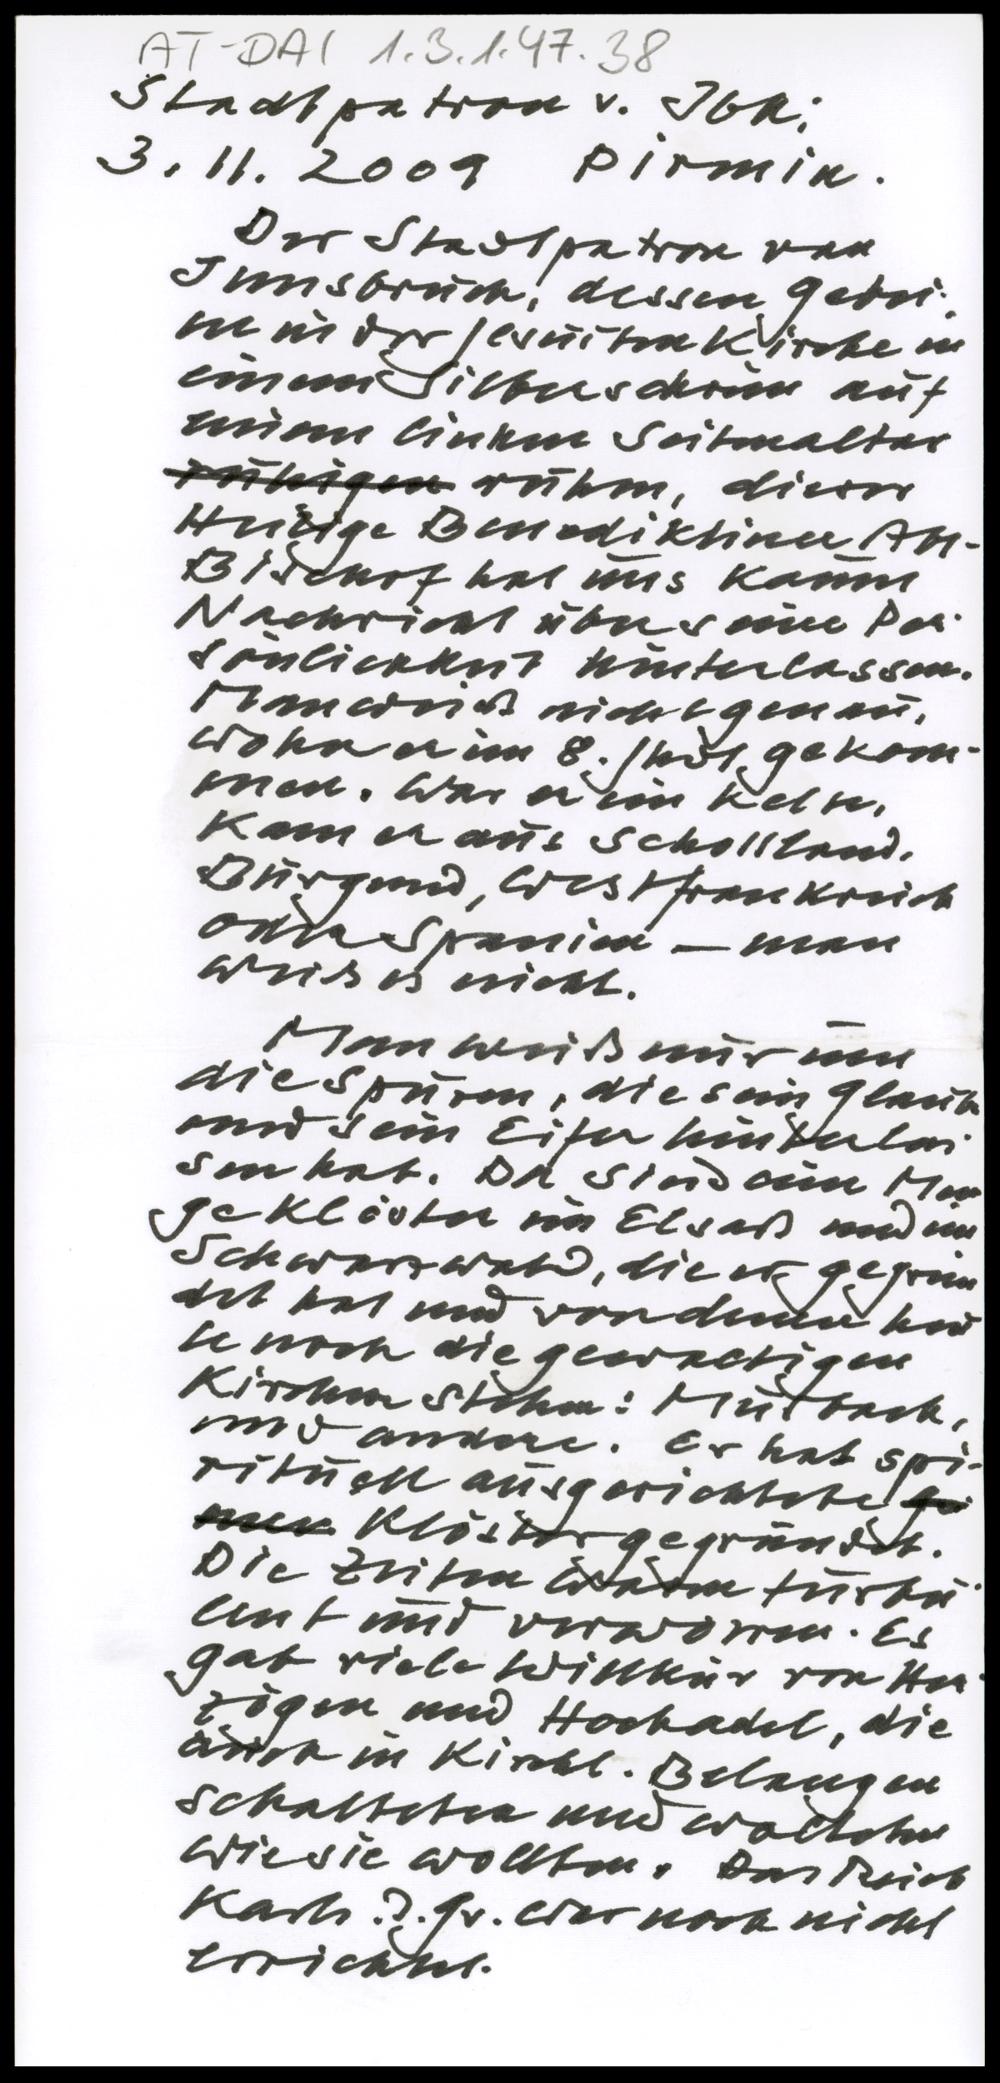 AT-DAI 1.3.1.47.38
Stadtpatron v. Ibk:
3.11.2009 Pirmin.
Der Stadtpatron von
Innsbruck, dessen Gebei-
ne in der Jesuitenkirche in
einem Silberschrein auf
einem linken Seitenaltar
ruhigen ruhen, dieser
Heilige Benediktiner Abt-
Bischof hat uns kaum
Nachricht über seine Per-
sönlichkeit hinterlassen.
Man weiß nicht genau,
woher er im 8. Jhdt. gekom-
men. War er ein Kelte,
kam er aus Schottland,
Burgund, Westfrankreich
oder Spanien – man
weiß es nicht.
Man weiß nur um
die Spuren, die sein Glaube
und sein Eifer hinterlas-
sen hat. Da sind eine Men
ge Klöster im Elsaß und im
Schwarzwald, die er gegrün
det hat und von denen heu
te noch die gewaltigen
Kirchen stehen: Murbach,
und andere. Er hat spi-
rituell ausgerichtete
Klöster gegründet.
Die Zeiten waren turbu-
lent und verworren. Es
gab viele Willkür von Her-
zögen und Hochadel, die
auch in kirchl. Belangen
schalteten und walteten
wie sie wollten. Das Reich
Karls d. Gr. war noch nicht
errichtet.